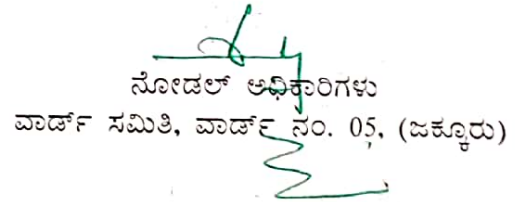 ನೋಡಲ್ ಅಧಿಕಾರಿಗಳು
ವಾರ್ಡ್ ಸಮಿತಿ, ವಾರ್ಡ್ ನಂ. 05, (ಜಕ್ಕೂರು)